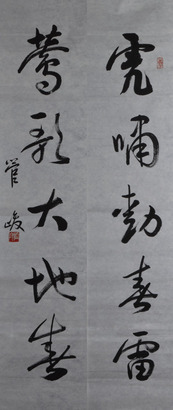 虎啸動春雷
莺歌大地春
管峻